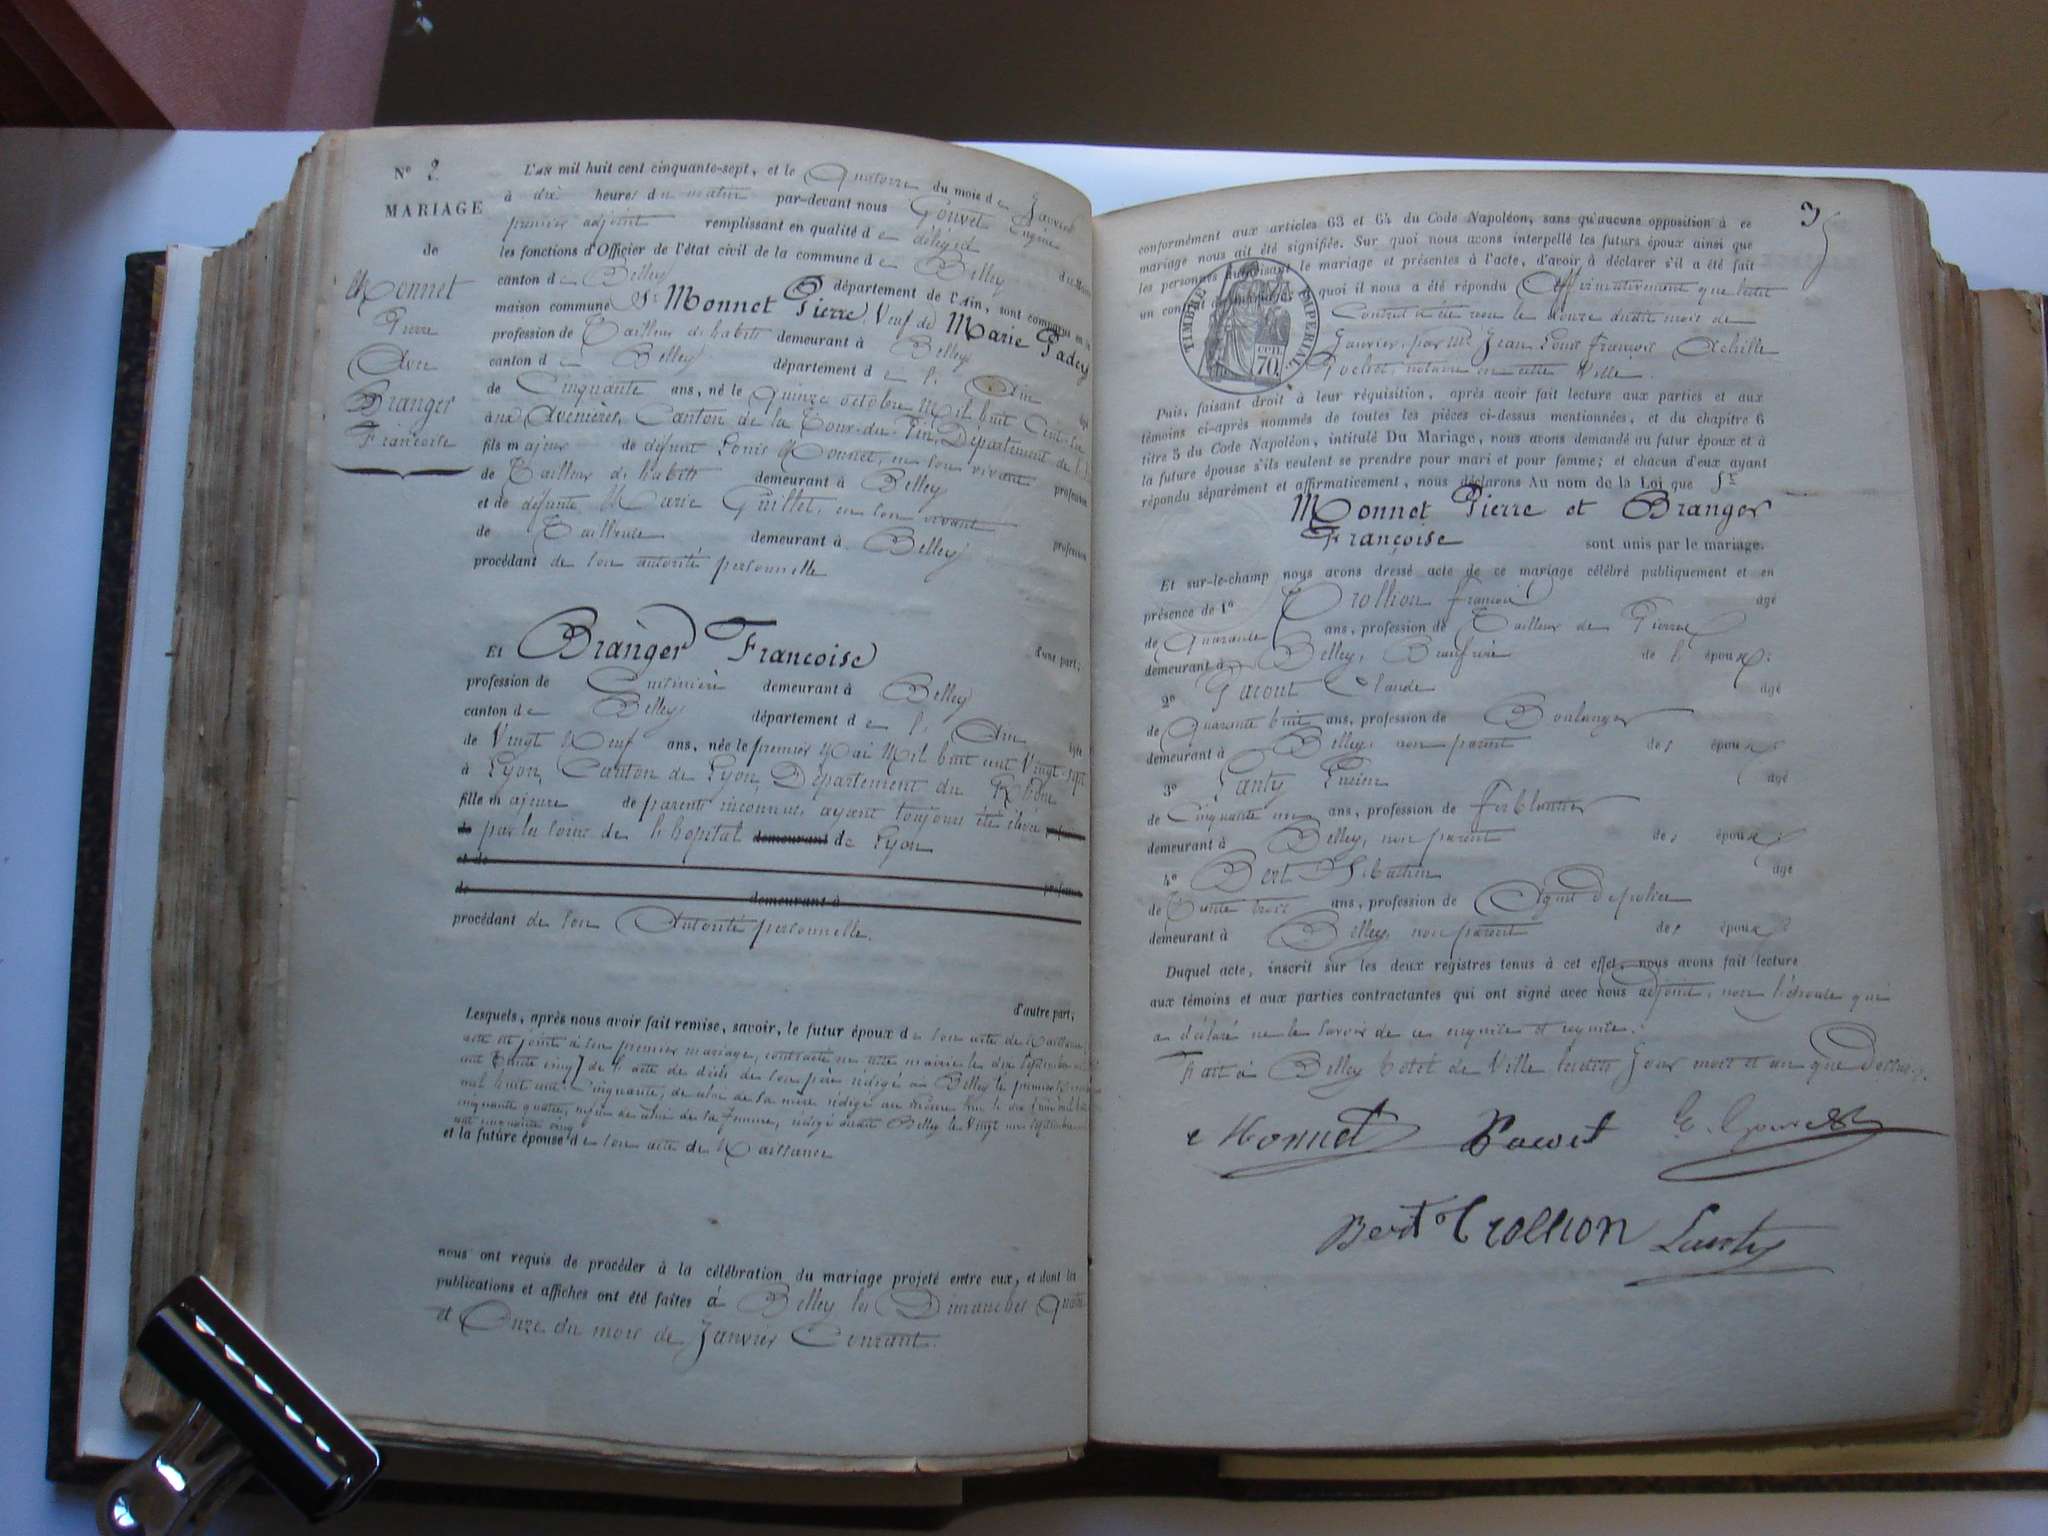 N° 2
MARIAGE
de
Monnet
Pierre
Avec
Branger
Francoise
L'AN mil huit cent cinquante-sept, et le Quatorze du mois de Janvier
à dix heures du matin par-devant nous Gouvet Eugène
premier adjoint remplissant en qualité de délégué
les fonctions d'Officier de l'état civil de la commune de Belley
canton de Belley département de l'Ain, sont comparus en la
maison commune Sr Monnet Pierre, Veuf de Marie Gadey
profession de Tailleur d'habits demeurant à Belley
canton de Belley département de l'Ain
de Cinquante ans, né le quinze octobre Mil huit Cent
aux Avenières, Canton de la Tour-du-Pin, Département de
fils majeur de défunt Louis Monnet, en son vivant profession
de Tailleur d'habits demeurant à Belley
et de défunte Marie Guillet, en son vivant profession
de Tailleuse demeurant à Belley
procédant de son autorité personnelle
d'une part;
Et Branger Francoise
profession de Cuisinière demeurant à Belley
canton de Belley département de l'Ain âgée
de Vingt Neuf ans, née le premier Mai Mil huit cent Vingt-sept
à Lyon, Canton de Lyon, Département du Rhône
fille majeure de parents inconnus, ayant toujours été élevée
de par les soins de l'hôpital demeurant de Lyon
et de
de demeurant à profession
procédant de son Autorité personnelle.
d'autre part;
Lesquels, après nous avoir fait remise, savoir, le futur époux de son acte de Naissance,
acte joint à son premier mariage, contracté en cette mairie le dix Septembre
cent Trente cinq, de l'acte de décès de son père rédigé à Belley le premier
mil huit cent cinquante, de celui de sa mère rédigé au même lieu le dix
cinquante quatre, enfin de celui de sa femme, rédigé audit Belley le Vingt un Septembre
cent cinquante cinq
et la future épouse de son acte de Naissance
nous ont requis de procéder à la célébration du mariage projeté entre eux, et dont la
publications et affiches ont été faites à Belley les Dimanches Quatre
et Onze du mois de Janvier Courant.
3
conformément aux articles 63 et 64 du Code Napoléon, sans qu'aucune opposition à ce
mariage nous ait été signifiée. Sur quoi nous avons interpellé les futurs époux ainsi que
les personnes autorisant le mariage et présentes à l'acte, d'avoir à déclarer s'il a été fait
un contrat de mariage, quoi il nous a été répondu Affirmativement que ledit
Contrat a été reçu le douze dudit mois de
Janvier, par Me Jean Louis François Achille
Pochet, notaire en cette Ville.
TIMBRE IMPÉRIAL
70 cen.
Puis, faisant droit à leur réquisition, après avoir fait lecture aux parties et aux
témoins ci-après nommés de toutes les pièces ci-dessus mentionnées, et du chapitre 6
titre 5 du Code Napoléon, intitulé Du Mariage, nous avons demandé au futur époux et à
la future épouse s'ils veulent se prendre pour mari et pour femme; et chacun d'eux ayant
répondu séparément et affirmativement, nous déclarons Au nom de la Loi que Sr
Monnet Pierre et Branger
Françoise sont unis par le mariage.
Et sur-le-champ nous avons dressé acte de ce mariage célébré publiquement et en
présence de 1° Trollion françois âgé
de Quarante ans, profession de Tailleur de Pierres
demeurant à Belley, Beaufrère de l'époux;
2° Pacout Claude âgé
de Quarante huit ans, profession de Boulanger
demeurant à Belley, non parent des époux;
3° Lanty Lucien âgé
de Cinquante un ans, profession de Ferblantier
demeurant à Belley, non parent des époux;
4° Bert Sébastien âgé
de Trente trois ans, profession de Agent de police
demeurant à Belley, non parent des époux;
Duquel acte, inscrit sur les deux registres tenus à cet effet, nous avons fait lecture
aux témoins et aux parties contractantes qui ont signé avec nous adjoint, non l'épouse qui
a déclaré ne le savoir de ce enquise et requise.
Fait à Belley hotel de Ville lesdits Jour mois et an que Dessus.
Monnet Pacout E. Gouvet
Bert Trollion Lanty